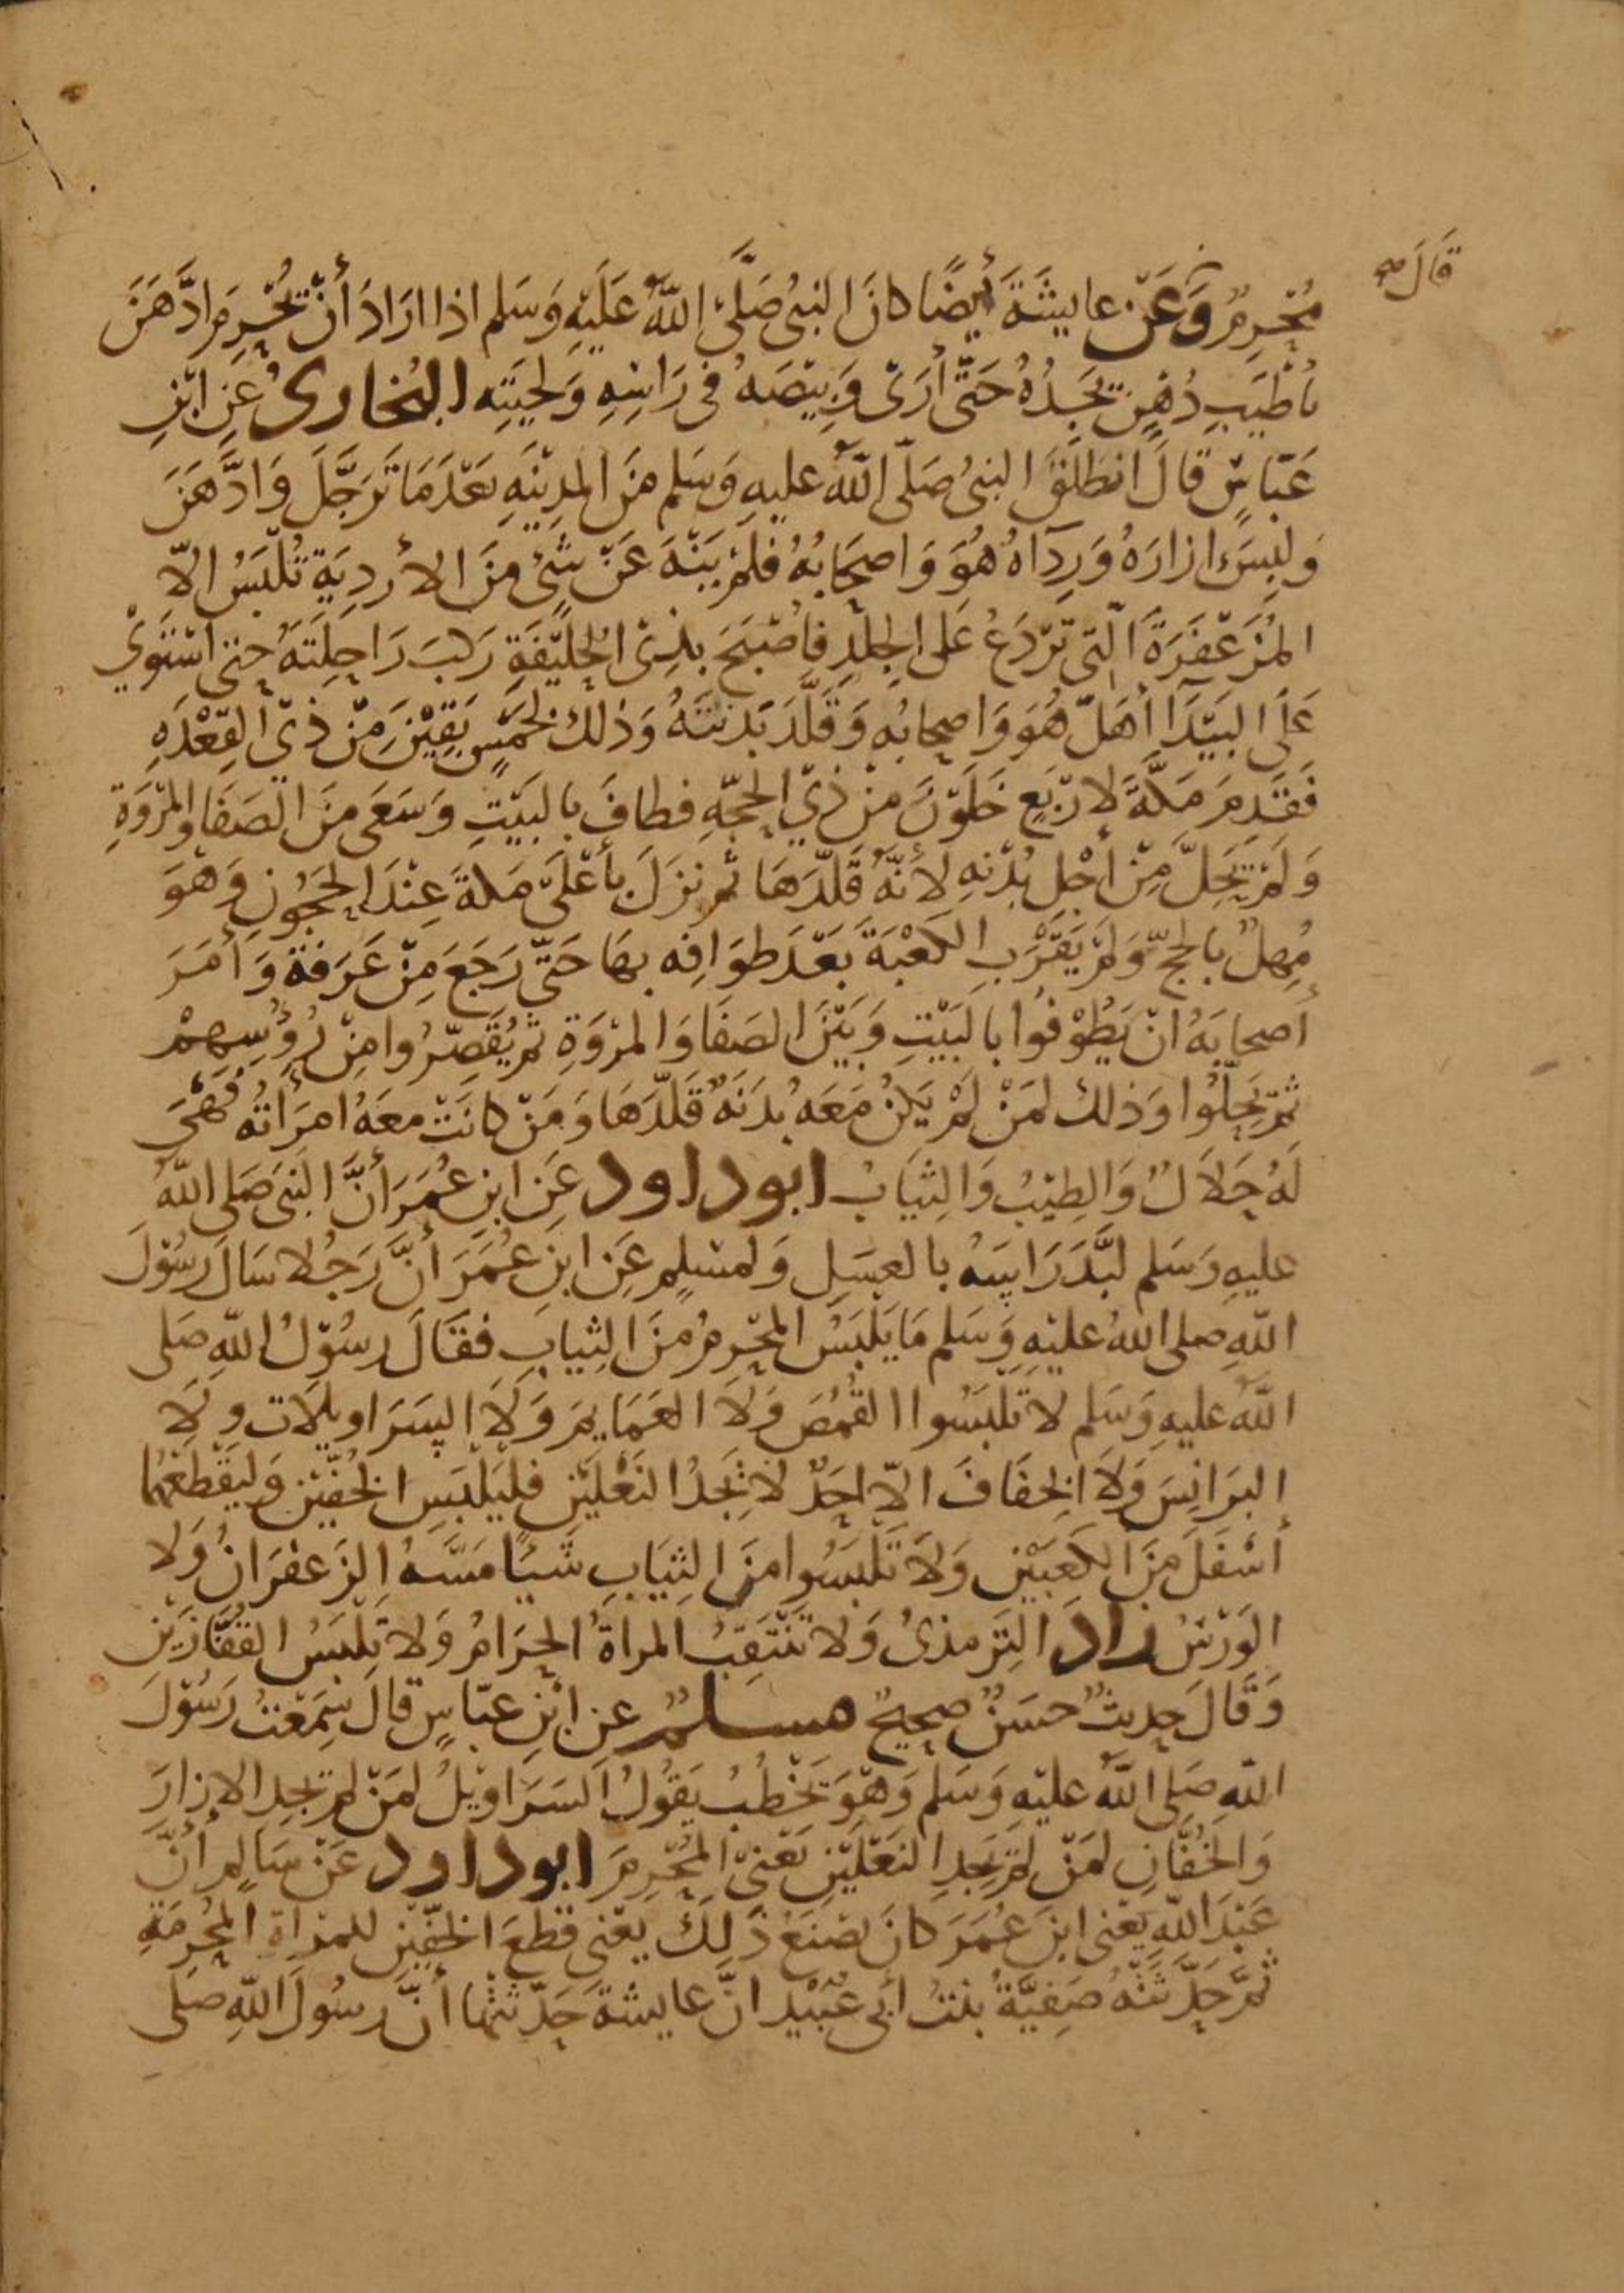 قَالَ صح
مُحْرِمٌ وَعَنْ عايشَةَ أيضًا كانَ النبىُ صَلَّى اللّهُ عَلَيْهِ وَسَلم اذا ارَادَ أَنْ يُحْرِمَ ادَّهَنَ
بأطْيَبِ دُهْنٍ يَجَدُهُ حَتَّى أَرَى وَبِيْصَهُ فى رَاسِهِ وَلحيَتِه البُخارى عَنِ ابْنِ
عَبّاسٍ قالَ انطَلَقَ النبىُ صَلّى اللّهُ عليهِ وَسَلم مِنَ المدِيْنِهِ بَعْدَمَا تَرَجَّلَ وَادَّهَنَ
وَلبِسَ ازارَهُ وَرِدَاهُ هُوَ وَاصحَابُهُ فَلمْ يَنْهَ عَنْ شىْءٍ مِنَ الأردِيَةِ تُلْبَسُ الاّ
المُزَعْفَرَةَ الّتى تَرْدَعُ عَلى الجِلدِ فأصْبَحَ بذِى الحُلَيْفَةِ رَكبَ رَاحِلَتَهُ حتى اسْتَوَىْ
عَلَى البَيْدَا أهَلّ هُوَ وَاصحابُهِ وَقَلَّدَ بَدَنتَهُ وَذلك لخَمْسٍ بَقِيْنَ مِنْ ذِىْ القِعْدَهِ
فَقَدِمَ مَكَّةَ لارْبَعٍ خَلَوْنَ مِنْ ذِيْ الحجّهِ فطافَ بالبَيْتِ وَسَعَى مِنَ الصَفَا والمرْوَةِ
وَلَمْ يَحِلَّ مِنْ أَجْل بُدْنِهِ لأَنَّهُ قَلّدَهَا ثم نزَلَ بأَعْلَىْ مَكةَ عِنْدَ الحَجُوْنِ وَهْوَ
مُهِلٌ بالحَجّ وَلمْ يَقْرَبِ الكَعْبَةَ بَعْدَ طوَافِه بهَا حَتَّى رَجَعَ مِنْ عَرَفةَ وَأَمَرَ
أصحابَهُ انْ يَطُوْفُوا بالبَيْتِ وَبَيْنَ الصَفَا وَالمرْوَةِ ثم يُقَصِّرُوا مِنْ رُؤُسِهِمْ
ثمّ يَحِلُّوْا وَذلك لمَنْ لَمْ يَكُنْ مَعَهُ بُدَنَهٌ قَلّدَهَا وَمَنْ كانَتْ مَعَهُ امرَأَتُه فَهْىَ
لَهُ حَلاَلٌ وَالطيْبُ وَالثيَابُ ابو داود عَنِ ابنِ عُمَرَ أَنَّ النبىَ صَلى اللّهُ
عليهِ وَسَلم لَبَّدَ رَاسَهُ بالعسَلِ وَلمسْلِمٍ عَنِ ابنِ عُمَرَ أَنَّ رَجُلا سَالَ رسُوْلَ
اللّهِ صلى اللّهُ عليْهِ وَسَلم مَا يَلْبَسُ المحْرِمُ مِنَ الثيابِ فقَالَ رسُوْلُ اللّهِ صَلى
اللّهُ عليهِ وَسَلم لا تَلبَسُوا القُمُصَ وَلاَ العَمَايِمَ وَلاَ السَرَاويلاَت ولاَ
البرَانِسَ وَلاَ الخِفَافَ الاّ احَدٌ لا يَجدُ النَعْلَيْنِ فليَلْبَسِ الخُفَّيْنِ وَليَقْطعْهُما
أسْفَلَ مِنَ الكعَبَيْنِ وَلاَ تَلْبَسُوا مِنَ الثِيَابِ شَيْئًا مَسَّهُ الزَعفرَانُ وَلا
الوَرْسُ زاد التِرمذىُ وَلا تَنْتَقِبُ المراةُ الحرَامُ وَلا تَلْبَسُ القُفَّازَيْنِ
وَقَالَ حديثٌ حسَنٌ صحيحٌ مسلمٌ عن ابْنِ عبّاسٍ قالَ سَمِعْتُ رَسُوْلَ
اللّهِ صَلى اللّهُ عليْهِ وَسَلم وَهْوَ يَخْطُبُ يَقُوْلُ السَرَاوِيْلُ لمَنْ لم يجِدِ الازارَ
وَالخُفَّانِ لمَنْ لمْ يَجِدِ النَعْلَيْنِ يَعْنىْ المُحْرِمَ ابو داود عَنْ سَالِم أَنَّ
عَبْدَ اللّهِ يَعْنى ابنَ عُمَرَ كانَ يَصْنَعُ ذَلِكَ يعْنى قَطْعَ الخفّيْنِ للمرْاةِ المحُرِمَةِ
ثمّ حَدّثتْهُ صَفِيَّةُ بنتُ أبى عُبَيْدٍ انَّ عايشَةَ حَدّثتْها أنَّ رسُولَ اللّهِ صَلى